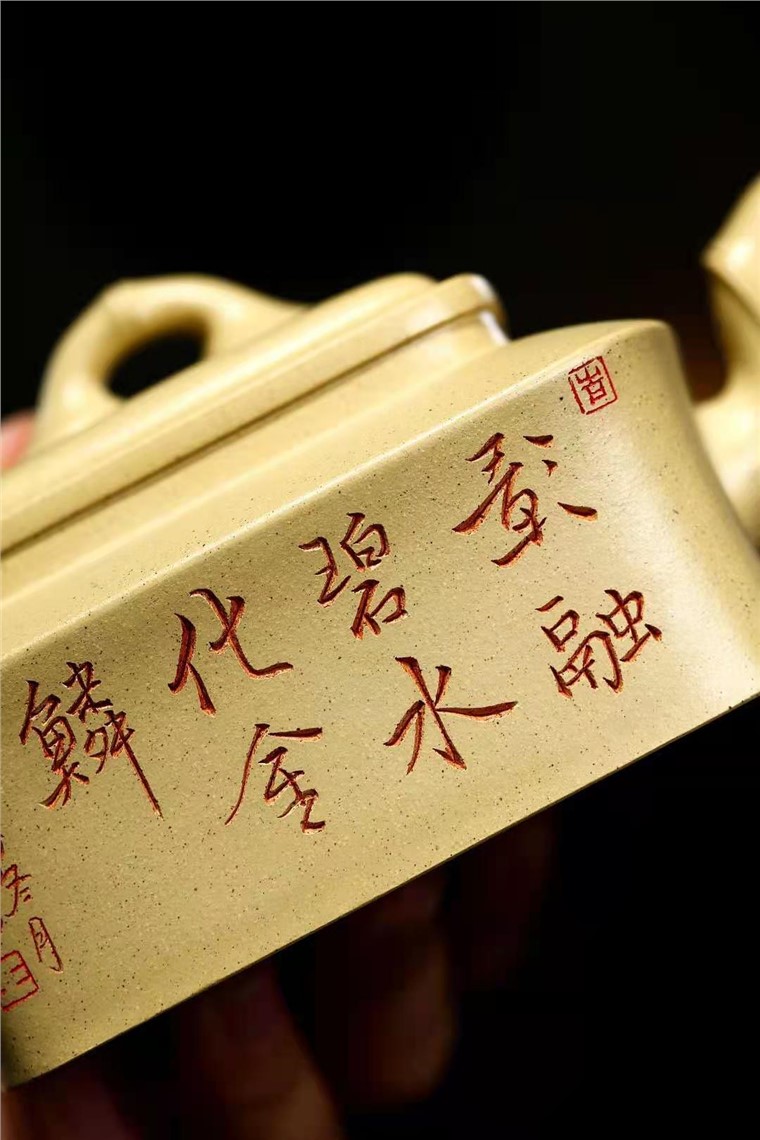 融
碧水
化金
鳞
月